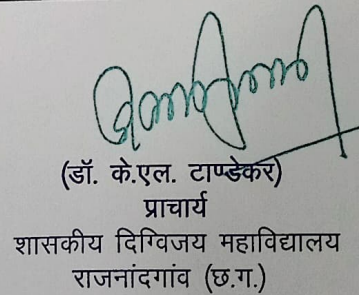 (डॉ. के.एल. टाण्डेकर)
प्राचार्य
शासकीय दिग्विजय महाविद्यालय
राजनांदगांव (छ.ग.)